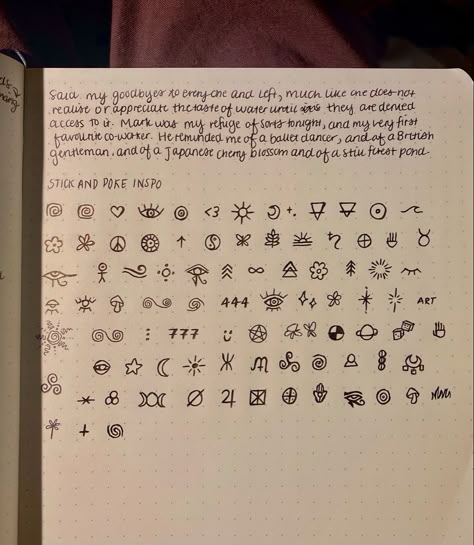 Said my goodbyes to everyone and left, much like one does not
realise or appreciate the taste of water until they are denied
access to it. Mark was my refuge of sorts tonight, and my very first
favourite co-worker. He reminded me of a ballet dancer, and of a British
gentleman, and of a Japanese cherry blossom and of a still forest pond.
STICK AND POKE INSPO
<3
444
ART
777